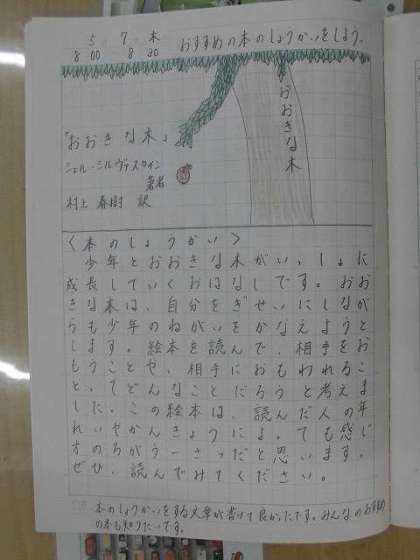 5 7 木 おすすめの本のしょうかいをしよう。
8:00 8:20
おおきな木
「おおきな木」
シェル・シルヴァスタイン
著者
村上 春樹 訳
〈本のしょうかい〉
少年とおおきな木がいっしょに
成長していくおはなしです。おお
きな木は、自分をぎせいにしなが
らも少年のねがいをかなえようと
します。絵本を読んで、相手をお
もうことや、相手におもわれるこ
とってどんなことだろうと考えま
した。この絵本は、読んだ人の年
れいやかんきょうによっても感じ
方のちがう一さつだと思います。
ぜひ、読んでみてください。
本のしょうかいをする文章が書けて良かったです。みんなのおすすめ
の本も知りたいです。